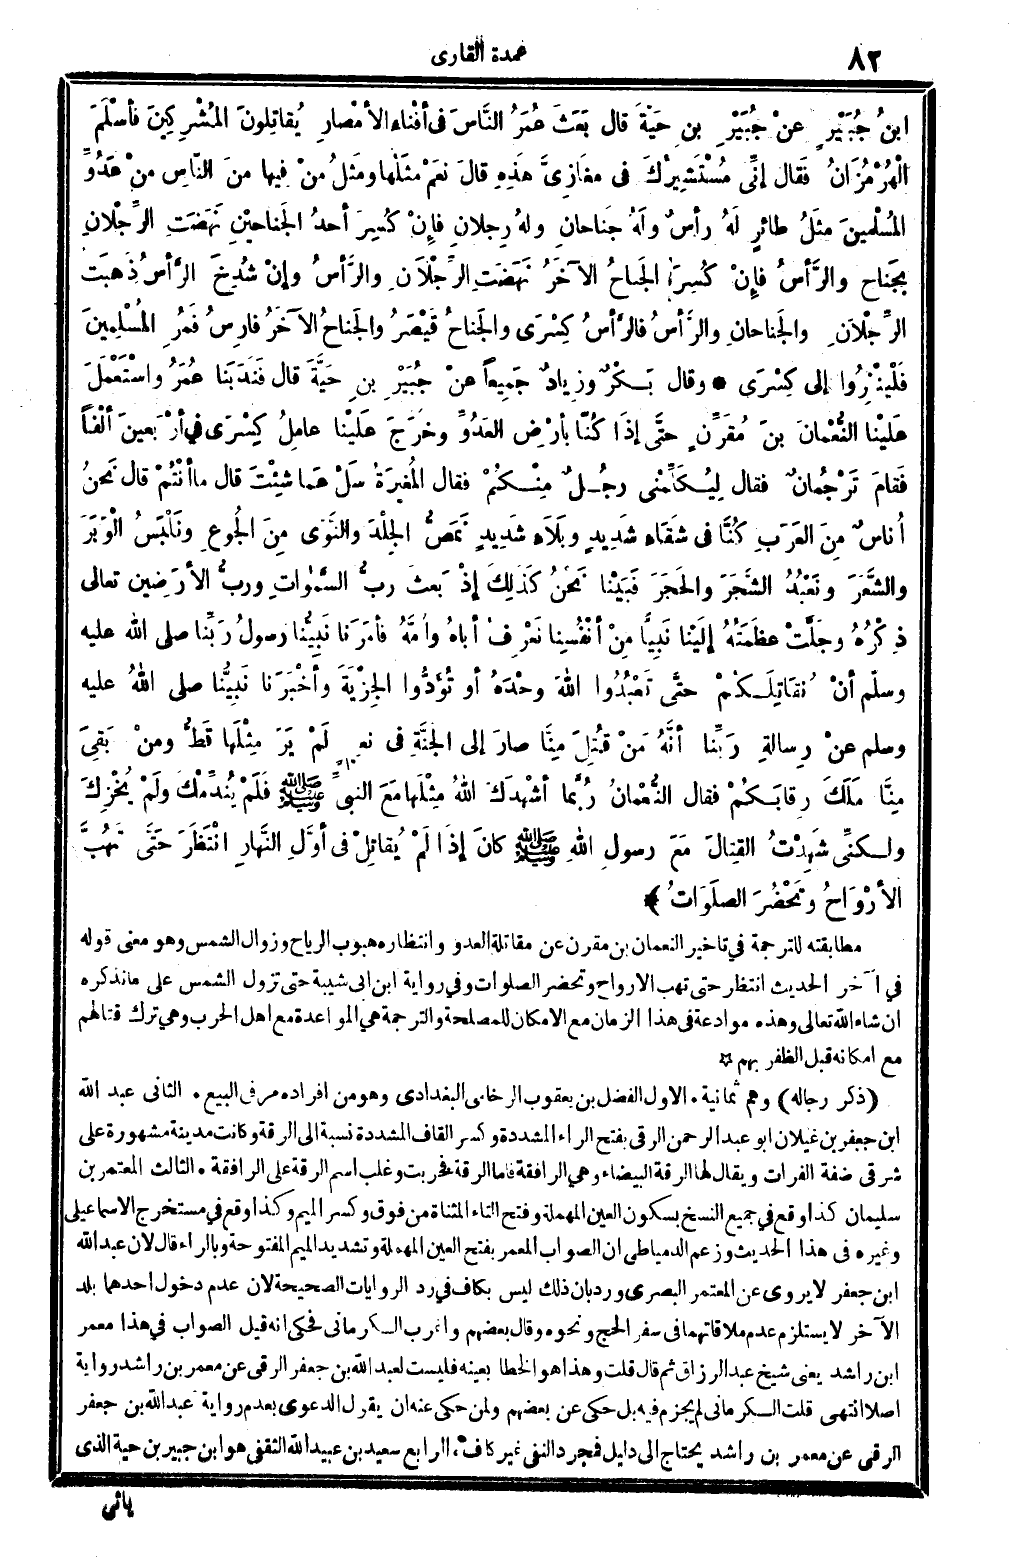 ٨٢
عمدة القارى
ابنُ جُبَيْرٍ عنْ جُبَيْرِ بنِ حَيَّةَ قال بَعَثَ عُمَرُ النَّاسَ فى أفْناءِ الأمْصارِ يُقاتِلونَ المُشْرِكِينَ فأسْلَمَ
الهُرْمُزَانُ فَقال إنِّى مُسْتَشِيرُكَ فى مغازِىَّ هَذِهِ قالَ نَعَمْ مَثَلُها ومَثَلُ مَنْ فِيها منَ النَّاسِ مِنْ عَدُوِّ
المُسْلِمينَ مثَلُ طائرٍ لَهُ رأسٌ ولَهُ جَناحانِ ولهُ رِجلانِ فإنْ كُسِرَ أحدُ الجَناحَيْنِ نَهَضَتِ الرِّجْلانِ
بِجَناحٍ والرَّأسُ فإِنْ كُسِرَ الجَناحُ الآخَرُ نَهَضَتِ الرِّجْلاَنِ والرَّأسُ وإنْ شُدِخَ الرَّأسُ ذَهَبَتِ
الرِّجْلاَنِ والجَناحانِ والرَّأسُ فالرَّأسُ كِسْرَى والجَناحُ قَيْصَرُ والجَناحُ الآخَرُ فارِسُ فَمُرِ المُسْلِمِينَ
فَلْيَنْفِرُوا إلى كِسْرَى • وقال بَكْرٌ وزِيادٌ جَمِيعاً عنْ جُبَيْرِ بنِ حَيَّةَ قال فَنَدَبَنا عُمَرُ واسْتَعْمَلَ
عَلَيْنا النُّعْمَانَ بنَ مُقَرِّنٍ حتَّى إذَا كُنَّا بأرْضِ العَدُوِّ وخَرَجَ عَلَيْنا عامِلُ كِسْرَى فى أرْبَعينَ ألْفاً
فَقامَ تَرْجُمانٌ فقال لِيُكَلِّمْنى رجُلٌ مِنْكُمْ فقال المُغيرَةُ سَلْ عَما شِئْتَ قال ما أنْتُمْ قال نَحنُ
أُناسٌ مِنَ العَرَبِ كُنَّا فى شَقَاءٍ شَدِيدٍ وبَلاَءٍ شَدِيدٍ نَمَصُّ الجِلْدَ والنَّوَى مِنَ الجُوعِ ونَلْبَسُ الْوَبَرَ
والشَّعَرَ ونَعْبُدُ الشَّجَرَ والحَجَرَ فَبَيْنا نَحْنُ كَذَلِكَ إذْ بَعثَ ربُّ السَّمٰوَاتِ وربُّ الأرَضِينَ تعالى
ذِكْرُهُ وجَلَّتْ عظَمَتُهُ إلَيْنا نَبِيًّا مِنْ أنْفُسِنا نَعْرِفُ أباهُ وأُمَّهُ فأمَرَنا نَبِيُّنا رسولُ رَبِّنا صلى الله عليه
وسلّم أنْ نُقاتِلَكُمْ حتَّى تَعْبُدُوا اللهَ وحْدَهُ أو تُؤَدُّوا الجِزْيَةَ وأخْبَرَنا نَبِيُّنا صلى اللهُ عليه
وسلم عنْ رِسالةِ رَبِّنا أنَّهُ مَنْ قُتِلَ مِنَّا صارَ إلى الجَنَّةِ فى نعِيمٍ لَمْ يَرَ مِثْلَها قَطُّ ومنْ بَقِىَ
مِنَّا مَلَكَ رِقابَكُمْ فقال النُّعْمانُ رُبَّما أشْهَدَكَ اللهُ مِثْلَها مَعَ النبىِّ ﷺ فَلَمْ يُنَدِّمْكَ ولَمْ يُخْزِكَ
ولكنِّى شَهِدْتُ القِتالَ مَعَ رسولِ اللهِ ﷺ كانَ إذَا لَمْ يُقاتِلْ فى أوَّلِ النَّهارِ انْتَظَرَ حَتَّى تَهُبَّ
الأرْوَاحُ وتَحْضُرَ الصلَوَاتُ ﴾
مطابقته للترجمة فى تاخير النعمان بن مقرن عن مقاتلة العدو وانتظاره هبوب الرياح وزوال الشمس وهو معنى قوله
فى آخر الحديث انتظر حتى تهب الارواح وتحضر الصلوات وفى رواية ابن ابى شيبة حتى تزول الشمس على ما نذكره
ان شاء الله تعالى وهذه موادعة فى هذا الزمان مع الامكان للمصلحة والترجمة هى الموادعة مع اهل الحرب وهى ترك قتالهم
مع امكانه قبل الظفر بهم ☆
(ذكر رجاله) وهم ثمانية • الاول الفضل بن يعقوب الرخامى البغدادى وهو من افراده مر فى البيع • الثانى عبد الله
ابن جعفر بن غيلان ابو عبد الرحمن الرقى بفتح الراء المشددة وكسر القاف المشددة نسبة الى الرقة وكانت مدينة مشهورة على
شرقى ضفة الفرات ويقال لها الرقة البيضاء وهى الرافقة فاما الرقة فخربت وغلب اسم الرقة على الرافقة • الثالث المعتمر بن
سليمان كذا وقع فى جميع النسخ بسكون العين المهملة وفتح التاء المثناة من فوق وكسر الميم وكذا وقع فى مستخرج الاسماعيلى
وغيره فى هذا الحديث وزعم الدمياطى ان الصواب المعمر بفتح العين المهملة وتشديد الميم المفتوحة وبالراء قال لان عبد الله
ابن جعفر لا يروى عن المعتمر البصرى ورد بان ذلك ليس بكاف فى رد الروايات الصحيحة لان عدم دخول احدهما بلد
الآخر لا يستلزم عدم ملاقاتهما فى سفر الحج ونحوه وقال بعضهم واغرب الكرمانى فحكى انه قيل الصواب فى هذا معمر
ابن راشد يعنى شيخ عبد الرزاق ثم قال قلت وهذا هو الخطا بعينه فليست لعبد الله بن جعفر الرقى عن معمر بن راشد رواية
اصلا انتهى قلت الكرمانى لم يجزم فيه بل حكى عن بعضهم ولمن حكى عنه ان يقول الدعوى بعدم رواية عبد الله بن جعفر
الرقى عن معمر بن راشد يحتاج الى دليل فمجرد النفى غير كاف • الرابع سعيد بن عبيد الله الثقفى هو ابن جبير بن حية الذى
ياتى